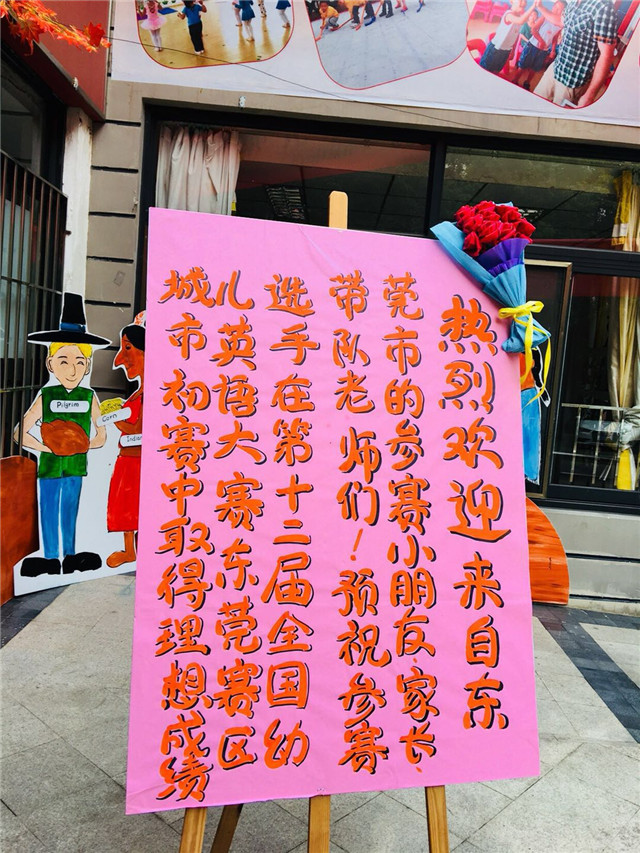 热烈欢迎来自东
莞市的参赛小朋友、家长、
带队老师们！预祝参赛
选手在第十二届全国幼
儿英语大赛东莞赛区
城市初赛中取得理想成绩
Pilgrim
Corn
Indian